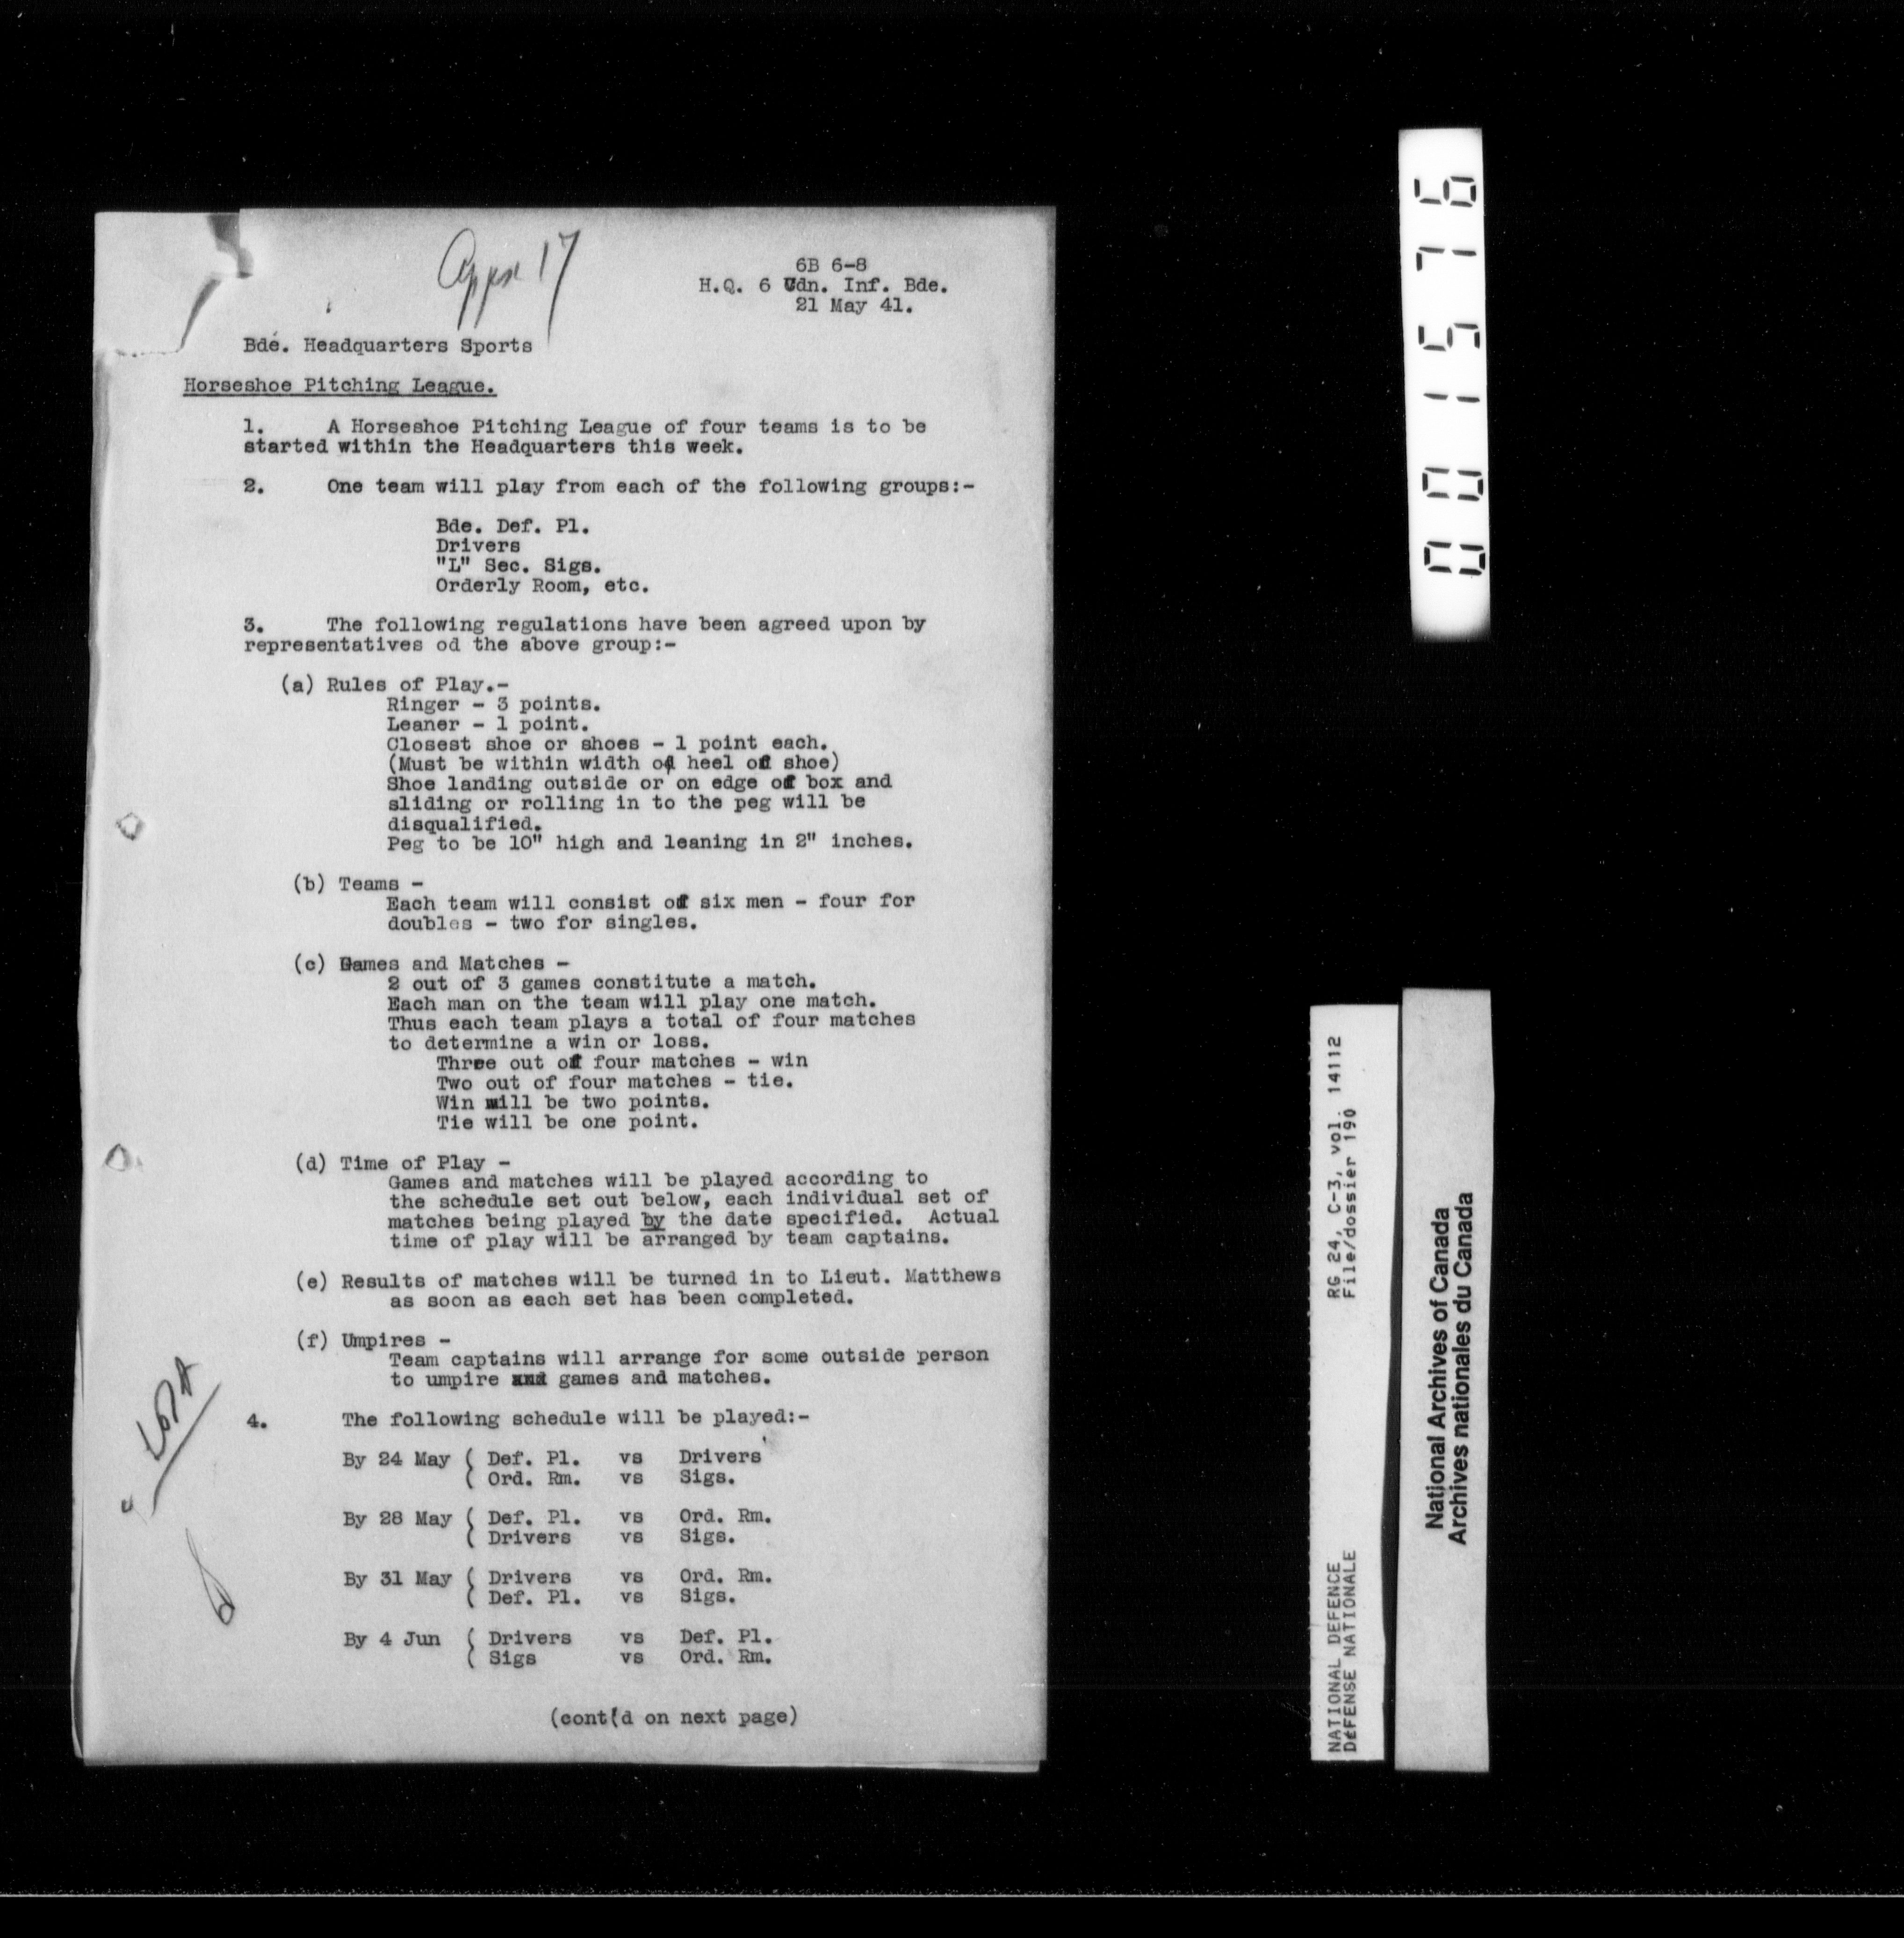 Appx 17
6B 6-8
H.Q. 6 Cdn. Inf. Bde.
21 May 41.
Bde. Headquarters Sports
Horseshoe Pitching League.
1. A Horseshoe Pitching League of four teams is to be
started within the Headquarters this week.
2. One team will play from each of the following groups:-
Bde. Def. Pl.
Drivers
"L" Sec. Sigs.
Orderly Room, etc.
3. The following regulations have been agreed upon by
representatives od the above group:-
(a) Rules of Play.-
Ringer - 3 points.
Leaner - 1 point.
Closest shoe or shoes - 1 point each.
(Must be within width of heel of shoe)
Shoe landing outside or on edge of box and
sliding or rolling in to the peg will be
disqualified.
Peg to be 10" high and leaning in 2" inches.
(b) Teams -
Each team will consist of six men - four for
doubles - two for singles.
(c) Games and Matches -
2 out of 3 games constitute a match.
Each man on the team will play one match.
Thus each team plays a total of four matches
to determine a win or loss.
Three out of four matches - win
Two out of four matches - tie.
Win will be two points.
Tie will be one point.
(d) Time of Play -
Games and matches will be played according to
the schedule set out below, each individual set of
matches being played by the date specified. Actual
time of play will be arranged by team captains.
(e) Results of matches will be turned in to Lieut. Matthews
as soon as each set has been completed.
(f) Umpires -
Team captains will arrange for some outside person
to umpire games and matches.
4. The following schedule will be played:-
By 24 May ( Def. Pl. vs Drivers
( Ord. Rm. vs Sigs.
By 28 May ( Def. Pl. vs Ord. Rm.
( Drivers vs Sigs.
By 31 May ( Drivers vs Ord. Rm.
( Def. Pl. vs Sigs.
By 4 Jun ( Drivers vs Def. Pl.
( Sigs vs Ord. Rm.
(cont'd on next page)
001576
RG 24, C-3, vol. 14112
File/dossier 190
NATIONAL DEFENCE
DéFENSE NATIONALE
National Archives of Canada
Archives nationales du Canada